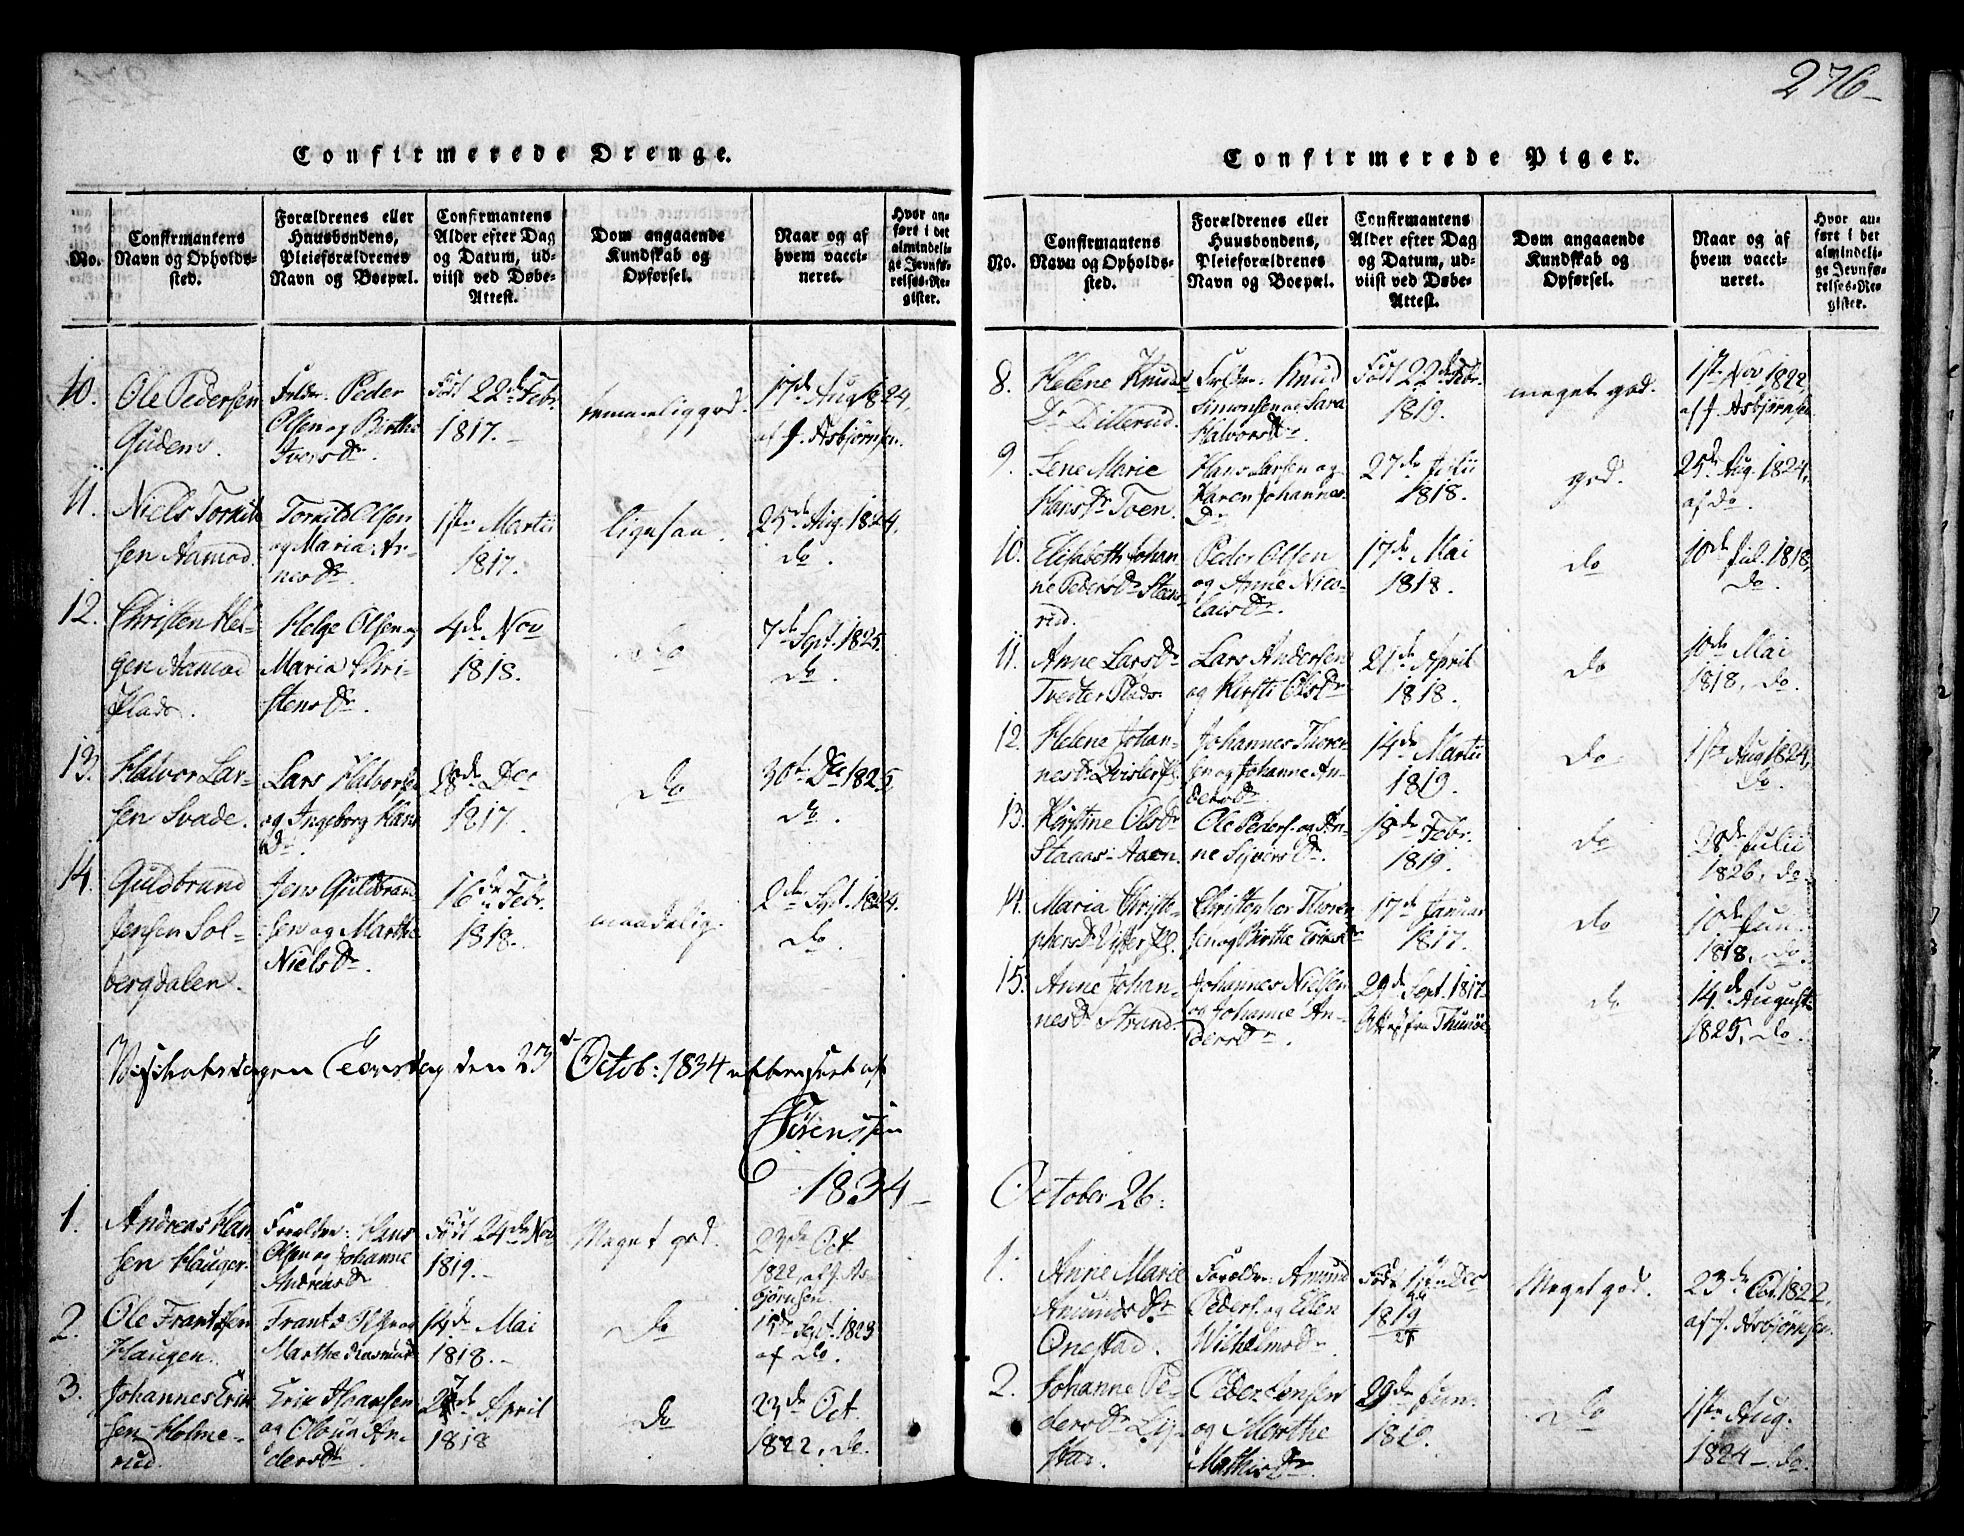 276
Confirmerede Drenge.
No.
Confirmantens Navn og Opholdssted.
Forældrenes eller Huusbondens, Pleieforældrenes Navn og Boepæl.
Confirmantens Alder efter Dag og Datum, udviist ved Døbe-Attest.
Dom angaaende Kundskab og Opførsel.
Naar og af hvem vaccineret.
Hvor anført i det almindelige Jevnførelses-Register.
10. Ole Pedersen Gudem. Forældre: Peder Olsen og Birthe Ivers Dr. Født 22de Febr. 1817. temmelig god. 17de Aug 1824, af J. Asbjørnsen.
11. Niels Torkild sen Aamod. Torkild Olsen og Maria Arnes Dr. 1ste Martii 1817. ligesaa. 25de Aug. 1824, do.
12. Christen Helgen Aamod Plads. Helge Olsen og Maria Christens Dr. 4de Nov 1818. do 7de Sept. 1825. do.
13. Halvor Larsen Svade. Lars Halvorsen og Ingeborg Hans Dr. 28de Dec 1817. do 30te Dec 1825, do.
14. Guldbrand Jensen Solbergdalen. Jens Guldbrandsen og Marthe Niels Dr. 16de Febr. 1818. maadelig. 2de Sept. 1824. do.
den 23d Octob: 1834
Sørenssen
1834
1. Andreas Hansen Hauger. Forældre: Hans Olsen og Johanne Andreas Dr. Født 24de Nov 1819. Meget god. 23de Oct. 1822, af J. Asbjørnsen.
2. Ole Frantsen Haugen. Frants Olsen og Marthe Rasmusd 14de Mai 1818. Do 15de Sept. 1823 af Do.
3. Johannes Ericksen Holmerud. Eric Hansen og Olsen Anders Dr. April 1818 Do 23de Oct. 1822, do.
Confirmerede Piger.
No.
Confirmantens Navn og Opholdssted.
Forældrenes eller Huusbondens, Pleieforældrenes Navn og Boepæl.
Confirmantens Alder efter Dag og Datum, udviist ved Døbe-Attest.
Dom angaaende Kundskab og Opførsel.
Naar og af hvem vaccineret.
Hvor anført i det almindelige Jevnførelses-Register.
8. Helene Knuds Dr Dillerud. Forældre: Knud Simonsen og Sara Halvors Dr. Født 22de Febr. 1819. meget god. 1ste Nov 1822, af J. Asbjørnsen
9. Lene Marie Hans Dr Toen. Hans Larsen og Karen Johannes Dr 27de Julii 1818. god. 25de Aug. 1824, af do
10. Elisabeth Johanne Peders Dr Steensrud. Peder Olsen og Anne Nicolais Dr. 17de Mai 1818. do 10de Jul. 1818, do.
11. Anne Lars Dr Tvedter Plads. Lars Andersen og Kirsti Ols Dr 21de April 1818. do 10de Mai 1818, do.
12. Helene Johannes Dr Qvisler Pl. Johannes Thorensen og Johanne Anders Dr 14de Martii 1819. do 1ste Aug 1824, do.
13. Kirstine Ols Dr Staaas-Aaen. Ole Peders. og Anne Syvers Dr. 18de Febr. 1819. do 28de Julii 1826, do.
14. Maria Christophers Dr Vister Pl. Christopher Thorensen og Birthe Erics Dr 17de Januar 1817. do 10de Jun. 1818, do.
15. Anne Johannes Dr Strand. Johannes Nielsen og Johanne Anders Dr. 29de Sept. 1817 Att fra Thunøe do 14de August 1825, do.
October 26.
1. Anne Marie Amunds Dr Onestad. Forældre: Amund Peders. og Ellen Wilhelms Dr. Født Dec 1819 Meget god. 23de Oct. 1822, af J. Asbjørnsen.
2. Johanne Peders Dr Lystad. Peder Jensen og Marthe Mathis Dr. 29de Jun. 1819. Do 1ste Aug. 1824 do.